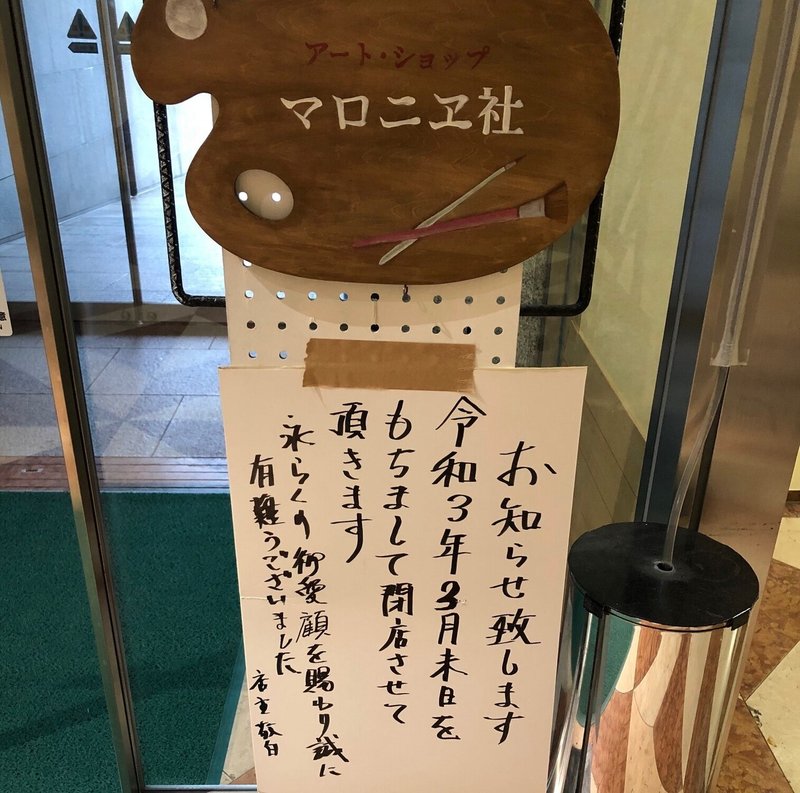 アート・ショップ
マロニヱ社
お知らせ致します
令和3年3月末日を
もちまして閉店させて
頂きます
永らくの御愛顧を賜わり誠に
有難うございました
店主敬白